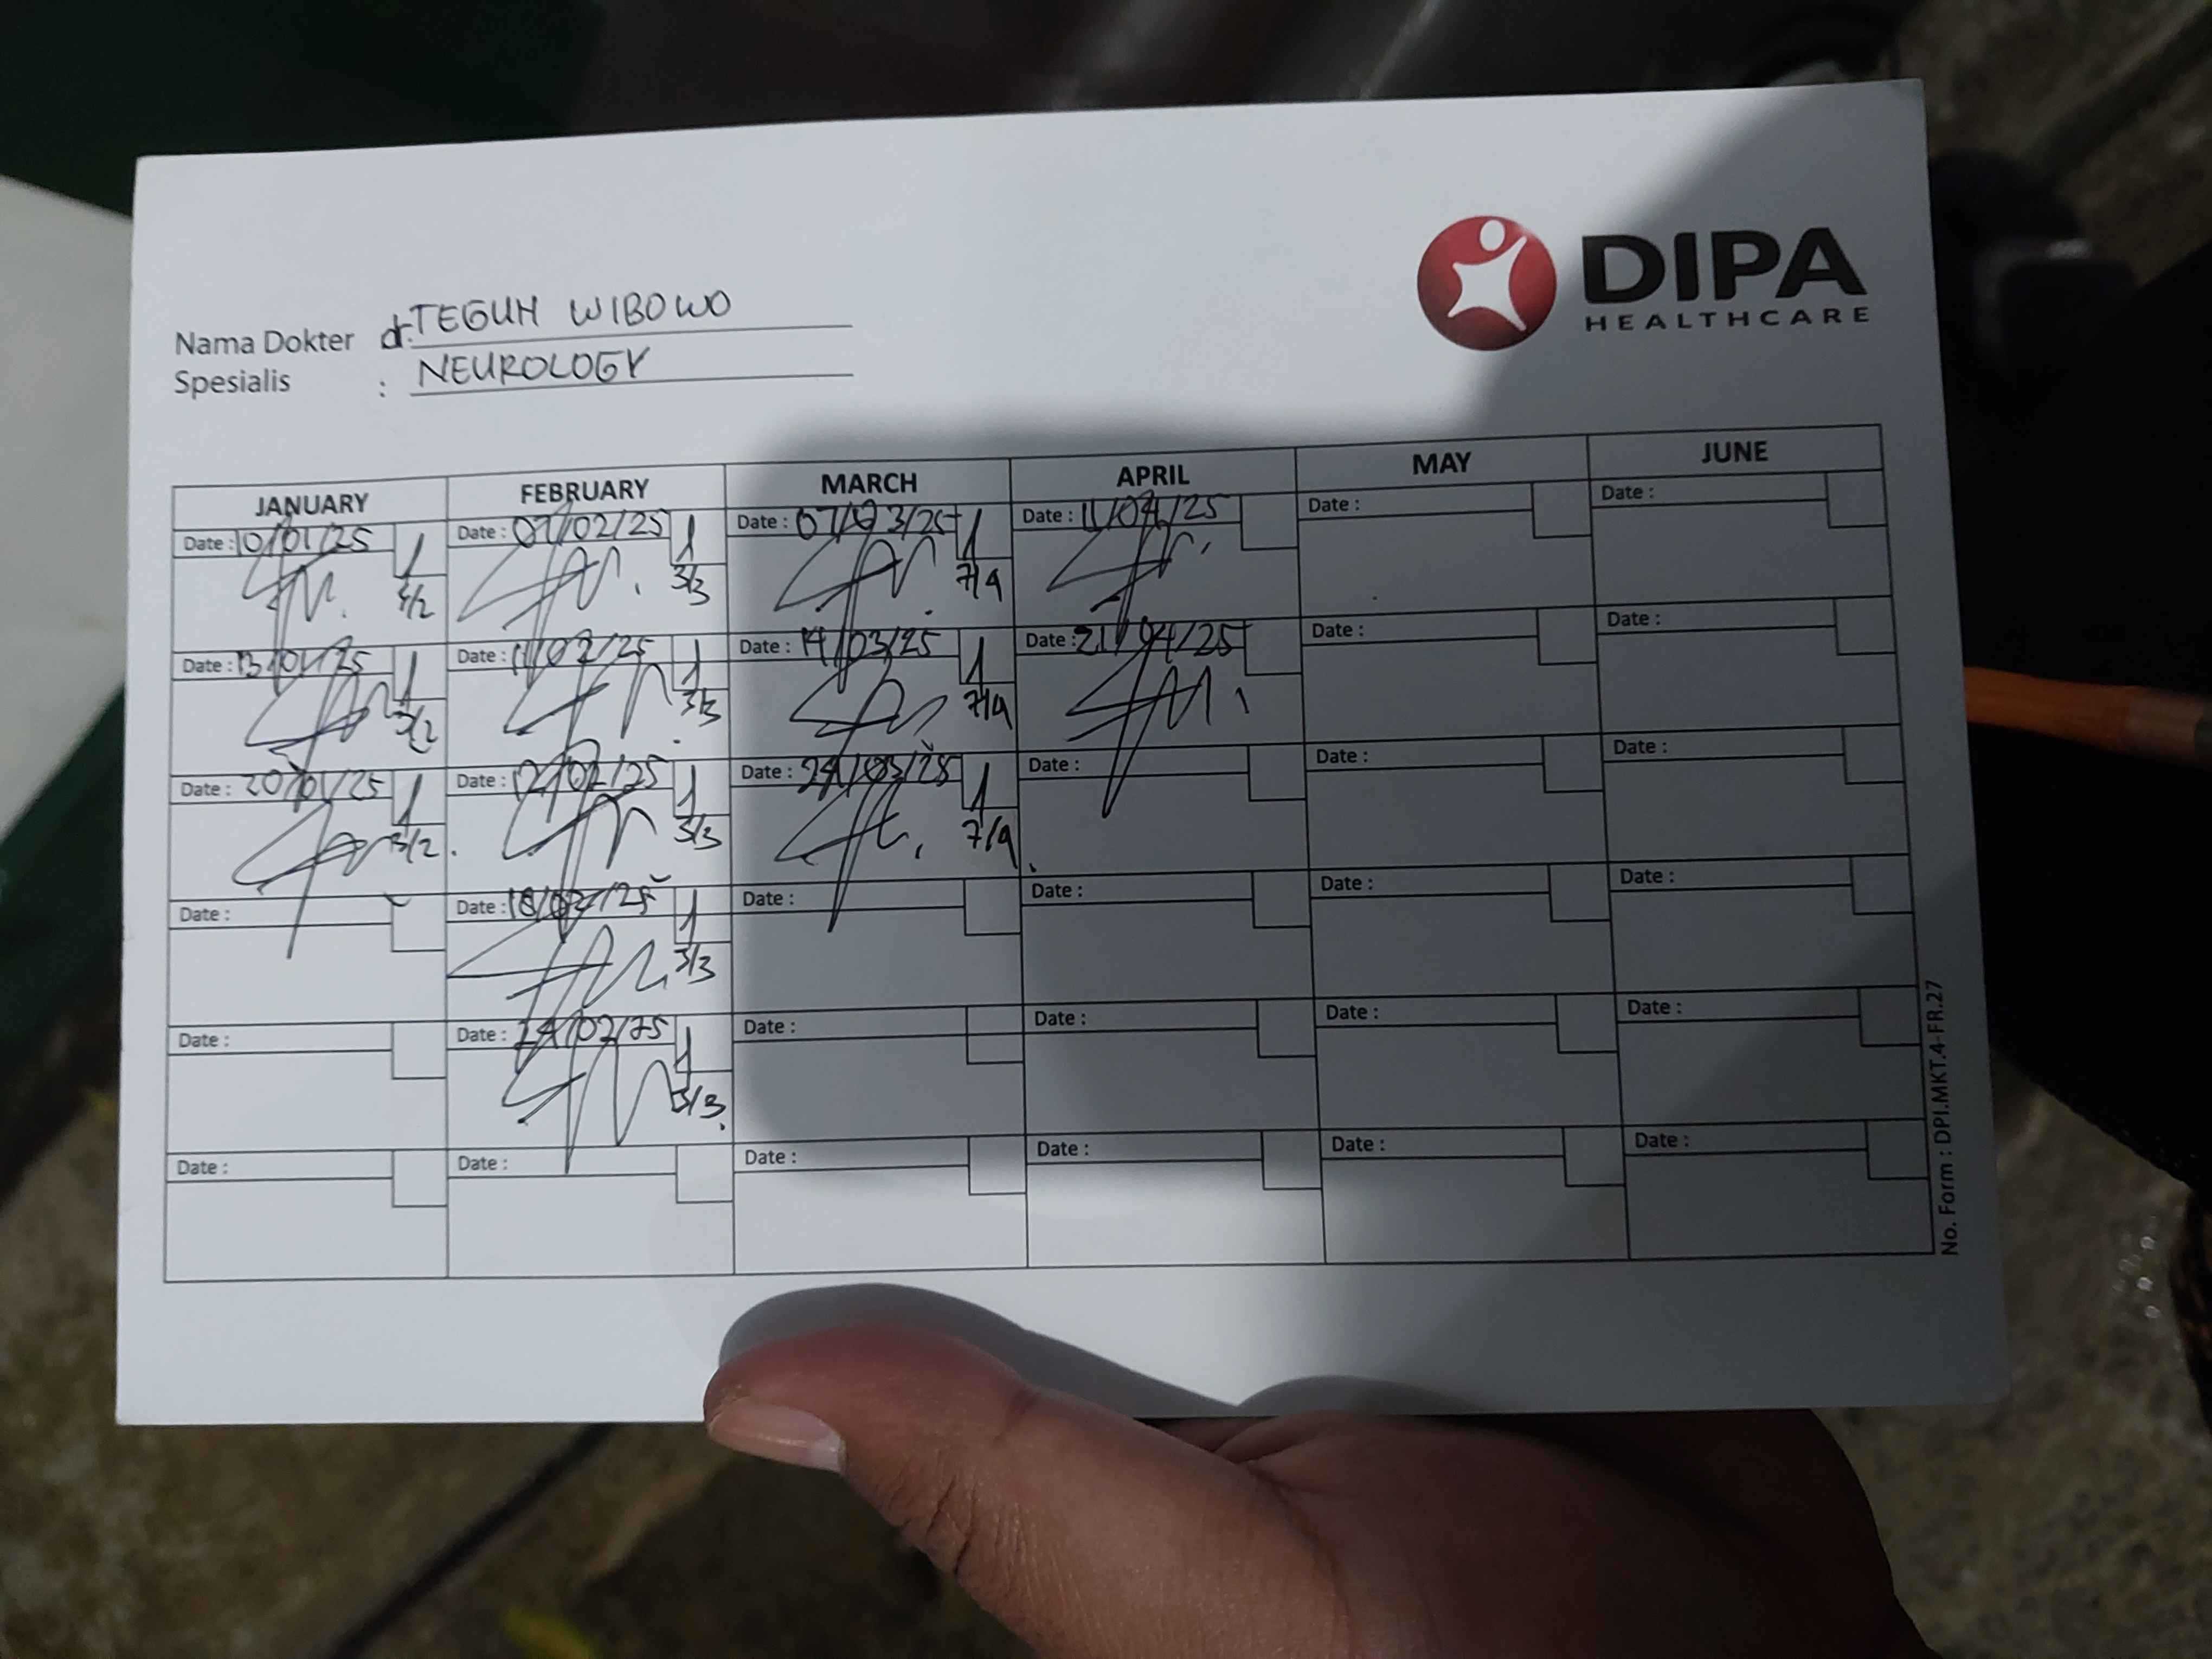 DIPA
HEALTHCARE
Nama Dokter dr. TEGUH WIBOWO
Spesialis : NEUROLOGY
JANUARY FEBRUARY MARCH APRIL MAY JUNE
Date : 10/01/25 Date : 07/02/25 Date : 07/03/25 Date : 11/04/25 Date : Date :
3/3 7/4
Date : 13/01/25 Date : 11/02/25 Date : 14/03/25 Date : 21/04/25 Date : Date :
3/2 3/3 7/4
Date : 20/01/25 Date : 12/02/25 Date : 24/03/25 Date : Date : Date :
3/2 3/3 7/4
Date : Date : 18/02/25 Date : Date : Date : Date :
3/3
Date : Date : 24/02/25 Date : Date : Date : Date :
3/3
Date : Date : Date : Date : Date : Date :
No. Form : DPI.MKT.4-FR.27